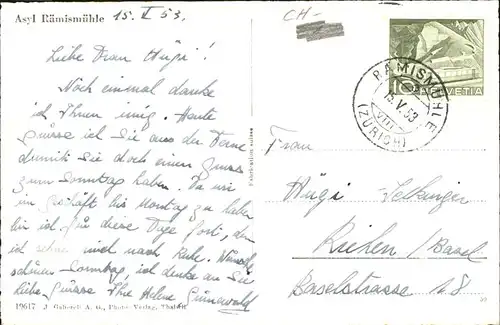 Asyl Rämismühle 15. V 53.
CH-
Liebe Frau Hügi!
Noch einmal danke
ich Ihnen innig. Heute
grüsse ich Sie aus der Ferne
damit Sie doch einen Gruss
zum Sonntag haben. Da wir
im Geschäft bis Montag zu haben
bin ich für diese Tage fort, denn
ich sehne mich nach Ruhe. Wünsche
schönen Sonntag, ich denke an Sie
Liebe Grüsse Ihre Helene Grünewald
19617 J. Gaberell A. G., Photo-Verlag, Thalwil
10 HELVETIA
RÄMISMÜHLE
15.V.53
VIII
(ZÜRICH)
Frau
Hügi-
Riehen/Basel
Baselstrasse 18